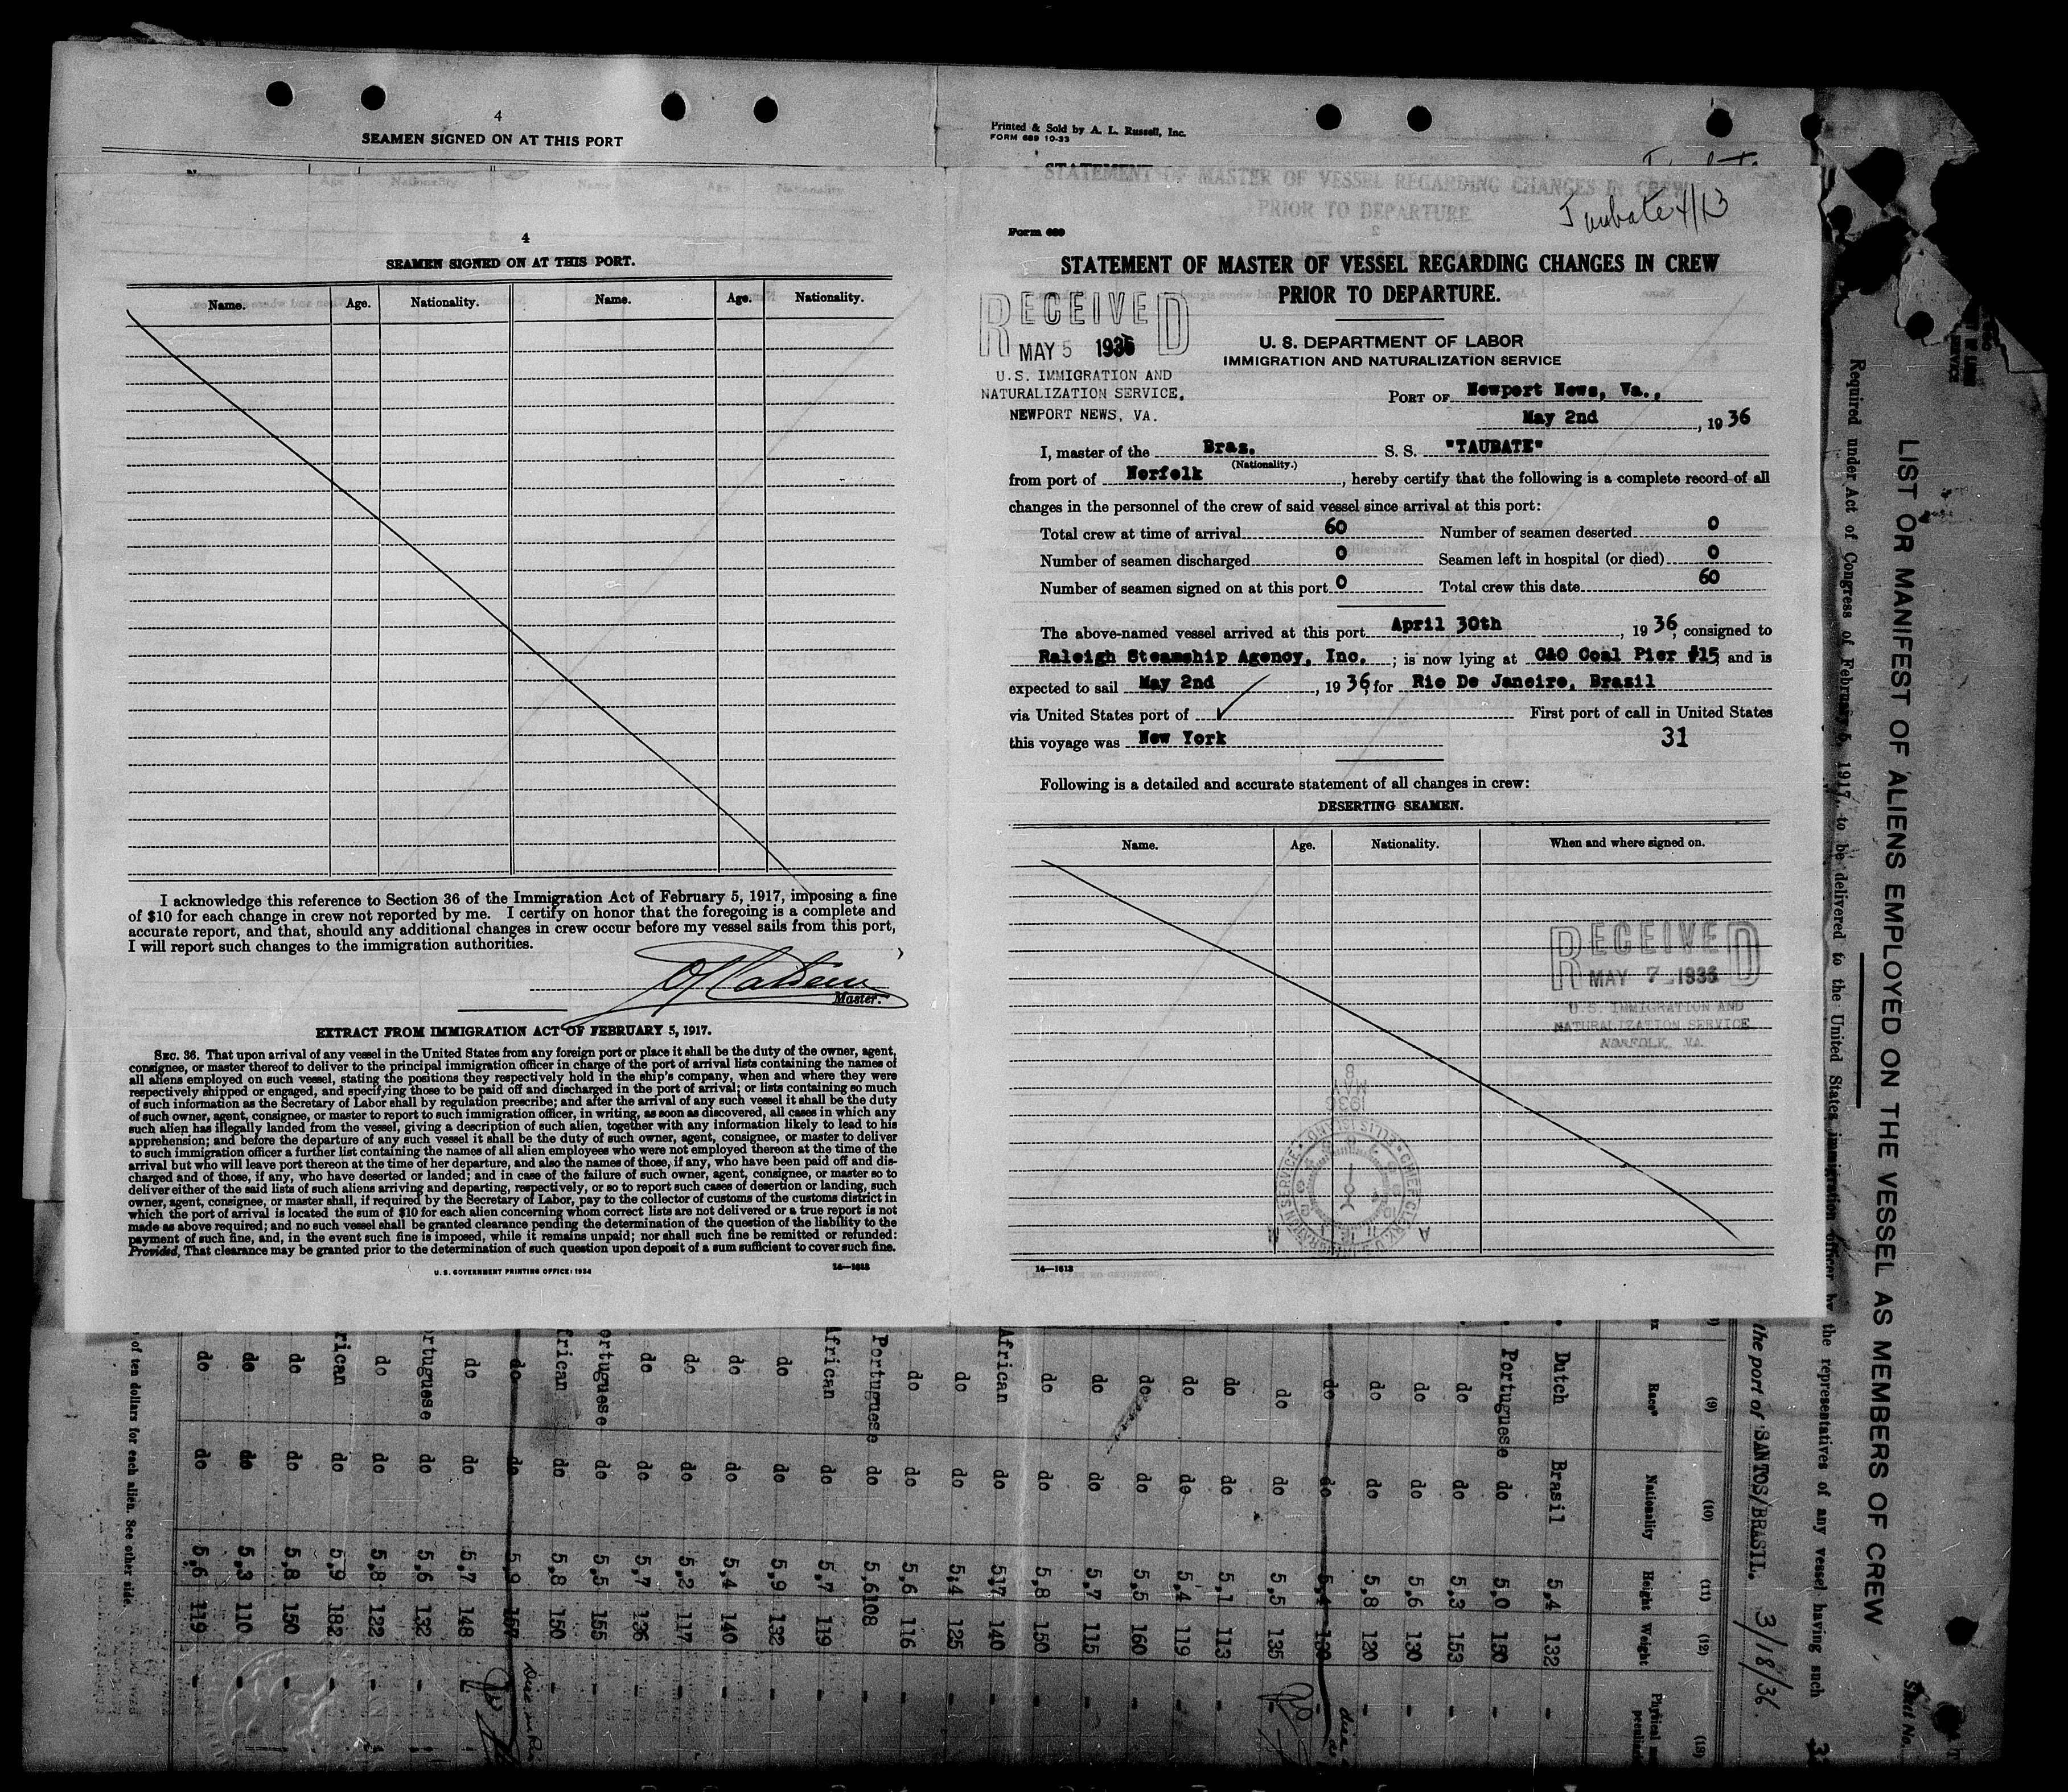 4
SEAMEN SIGNED ON AT THIS PORT
4
SEAMEN SIGNED ON AT THIS PORT.
Name. Age. Nationality. Name. Age. Nationality.
I acknowledge this reference to Section 36 of the Immigration Act of February 5, 1917, imposing a fine
of $10 for each change in crew not reported by me. I certify on honor that the foregoing is a complete and
accurate report, and that, should any additional changes in crew occur before my vessel sails from this port,
I will report such changes to the immigration authorities.
Master.
EXTRACT FROM IMMIGRATION ACT OF FEBRUARY 5, 1917.
SEC. 36. That upon arrival of any vessel in the United States from any foreign port or place it shall be the duty of the owner, agent,
consignee, or master thereof to deliver to the principal immigration officer in charge of the port of arrival lists containing the names of
all aliens employed on such vessel, stating the positions they respectively hold in the ship's company, when and where they were
respectively shipped or engaged, and specifying those to be paid off and discharged in the port of arrival; or lists containing so much
of such information as the Secretary of Labor shall by regulation prescribe; and after the arrival of any such vessel it shall be the duty
of such owner, agent, consignee, or master to report to such immigration officer, in writing, as soon as discovered, all cases in which any
such alien has illegally landed from the vessel, giving a description of such alien, together with any information likely to lead to his
apprehension; and before the departure of any such vessel it shall be the duty of such owner, agent, consignee, or master to deliver
to such immigration officer a further list containing the names of all alien employees who were not employed thereon at the time of the
arrival but who will leave port thereon at the time of her departure, and also the names of those, if any, who have been paid off and dis-
charged and of those, if any, who have deserted or landed; and in case of the failure of such owner, agent, consignee, or master so to
deliver either of the said lists of such aliens arriving and departing, respectively, or so to report such cases of desertion or landing, such
owner, agent, consignee, or master shall, if required by the Secretary of Labor, pay to the collector of customs of the customs district in
which the port of arrival is located the sum of $10 for each alien concerning whom correct lists are not delivered or a true report is not
made as above required; and no such vessel shall be granted clearance pending the determination of the question of the liability to the
payment of such fine, and, in the event such fine is imposed, while it remains unpaid; nor shall such fine be remitted or refunded:
Provided, That clearance may be granted prior to the determination of such question upon deposit of a sum sufficient to cover such fine.
U. S. GOVERNMENT PRINTING OFFICE: 1934
14—1613
Printed & Sold by A. L. Russell, Inc.
FORM 689 10-33
STATEMENT OF MASTER OF VESSEL REGARDING CHANGES IN CREW
PRIOR TO DEPARTURE
Taubate 4/13
Form 689
STATEMENT OF MASTER OF VESSEL REGARDING CHANGES IN CREW
PRIOR TO DEPARTURE.
RECEIVED
MAY 5 1936
U.S. IMMIGRATION AND
NATURALIZATION SERVICE.
NEWPORT NEWS, VA.
U. S. DEPARTMENT OF LABOR
IMMIGRATION AND NATURALIZATION SERVICE
PORT OF Newport News, Va.,
May 2nd, 1936
I, master of the Bras. S. S. "TAUBATE"
(Nationality.)
from port of Norfolk, hereby certify that the following is a complete record of all
changes in the personnel of the crew of said vessel since arrival at this port:
Total crew at time of arrival 60 Number of seamen deserted 0
Number of seamen discharged 0 Seamen left in hospital (or died) 0
Number of seamen signed on at this port 0 Total crew this date 60
The above-named vessel arrived at this port April 30th, 1936, consigned to
Raleigh Steamship Agency, Inc.; is now lying at C&O Coal Pier #15 and is
expected to sail May 2nd, 1936, for Rio De Janeiro, Brazil
via United States port of First port of call in United States
this voyage was New York 31
Following is a detailed and accurate statement of all changes in crew:
DESERTING SEAMEN.
Name. Age. Nationality. When and where signed on.
RECEIVED
MAY 7 1936
U.S. IMMIGRATION AND
NATURALIZATION SERVICE
NORFOLK, VA.
8
MAY
1936
14—1613
LIST OR MANIFEST OF ALIENS EMPLOYED ON THE VESSEL AS MEMBERS OF CREW
Sheet No.
Required under Act of Congress of February 5, 1917, to be delivered to the United States immigration officer by the representatives of any vessel having such
the port of SANTOS/BRASIL. 3/18/36
(9) (10) (11) (12) (13)
Race* Nationality Height Weight Physical
Dutch Brasil 5,4 132 -
Portuguese do 5,0 150 -
do do 5,3 153 -
do do 5,6 130 -
do do 5,8 120 -
do do 5,4 130
do do 5,5 135
do do 5,1 113 -
do do 5,4 119 -
do do 5,5 160 -
do do 5,7 115 -
do do 5,8 150 -
African do 517 140 -
do do 5,4 125 -
do do 5,6 116 -
Portuguese do 5,6108 -
African do 5,7 119 -
do do 5,9 132 -
do do 5,4 140 -
do do 5,2 117 -
do do 5,7 136 -
ortuguese do 5,5 155 -
frican do 5,8 150 -
do do 5,9 157
do do 5,7 148 -
rtuguese do 5,6 132 -
do do 5,8 122 -
rican do 5,9 182 -
do do 5,8 150 -
do do 5,3 110 -
do do 5,6 119 -
of ten dollars for each alien. See other side.